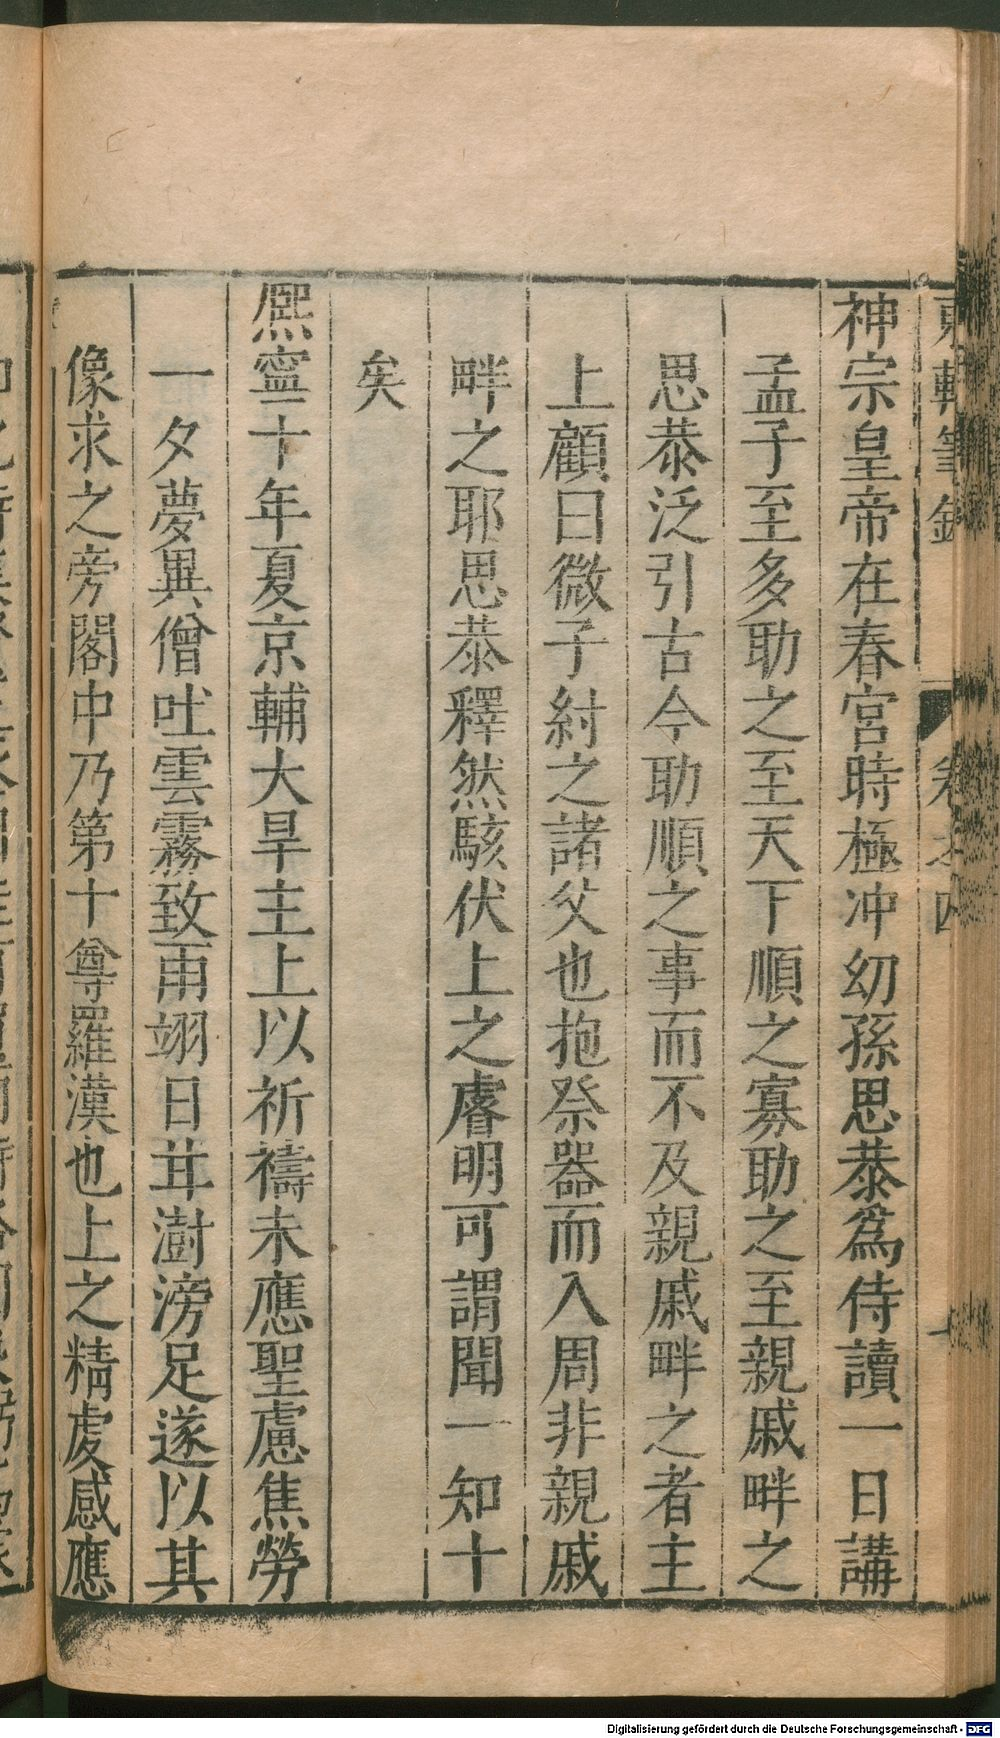 東軒筆錄 卷之四
神宗皇帝在春宮時極冲幼孫思恭爲侍讀一日講
孟子至多助之至天下順之寡助之至親戚畔之
思恭泛引古今助順之事而不及親戚畔之者主
上顧曰微子紂之諸父也抱祭器而入周非親戚
畔之耶思恭釋然駭伏上之睿明可謂聞一知十
矣
熈寧十年夏京輔大旱主上以祈禱未應聖慮焦勞
一夕夢異僧吐雲霧致雨翊日甘澍滂足遂以其
像求之旁閣中乃第十尊羅漢也上之精虔感應
Digitalisierung gefördert durch die Deutsche Forschungsgemeinschaft - DFG